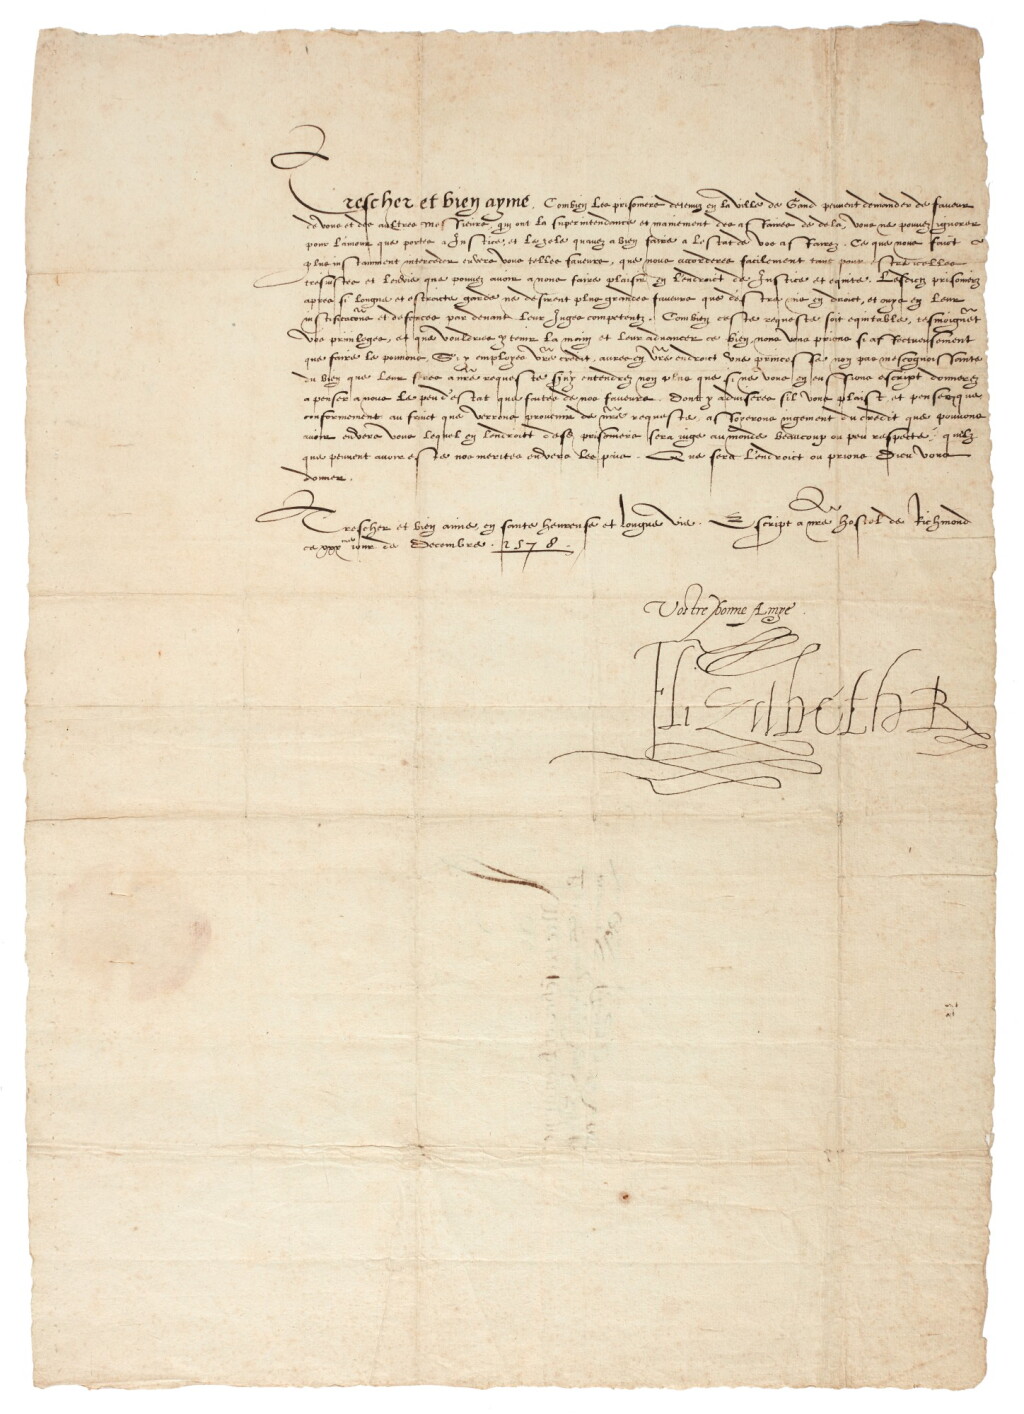 Trescher et bien aymé. Combien les prisoniers detenuz en la ville de Gand peuvent demander de faveur
de vous et des aultres messieurs, qui ont la superintendance et maniement des affaires de dela, vous ne pouvez ignorer
pour l'amour que portes a Justice, et le zele qu'avez a bien faire a lestat de vos affaires. Ce que nous faict
plus instamment interceder envers vous telles faveurs, que nous accorderes facilement tant pour estre icelles
tresjustes et que pouvez avoir a nous faire plaisir en l'endroict de Justice et equite. Lesdictz prisoniers
apres si longue et estroicte garde ne desirent plus grandes faveurs que d'estre mis en droict, et ouys en leur
justificacons et defences par devant leur Juges competentz. Combien ceste requeste soit equitable, tesmoignent
vos privileges, et que vouldres y tenir la main et leur advancer ce bien, nous vous prions si affectueusement
que faire le pouvons. Si y employes vre credit, aures en vre endroict une princesse non pas mescognoissante
du bien que leur feres a nre requeste
a penser a nous le peu d'estat que faites de nos faveurs. Dont y adviseres sil vous plaist, et penserez que
conformement au faict que verrons provenir de nre requeste, asseoirons jugement du credit que pouvons
avoir envers vous lequel en l'endroict desds prisoniers sera juge au monde beaucoup ou peu respecté
que peuvent avoir este nos merites envers les pays. Qui sera l'endroict ou prions Dieu vous
donner.
Trescher et bien aimé, en sante heureuse et longue vie. Escript a nre Hostel de Richmond
ce xxx jour de Decembre. 1578.
Vostre bonne Amye
Elizabeth R